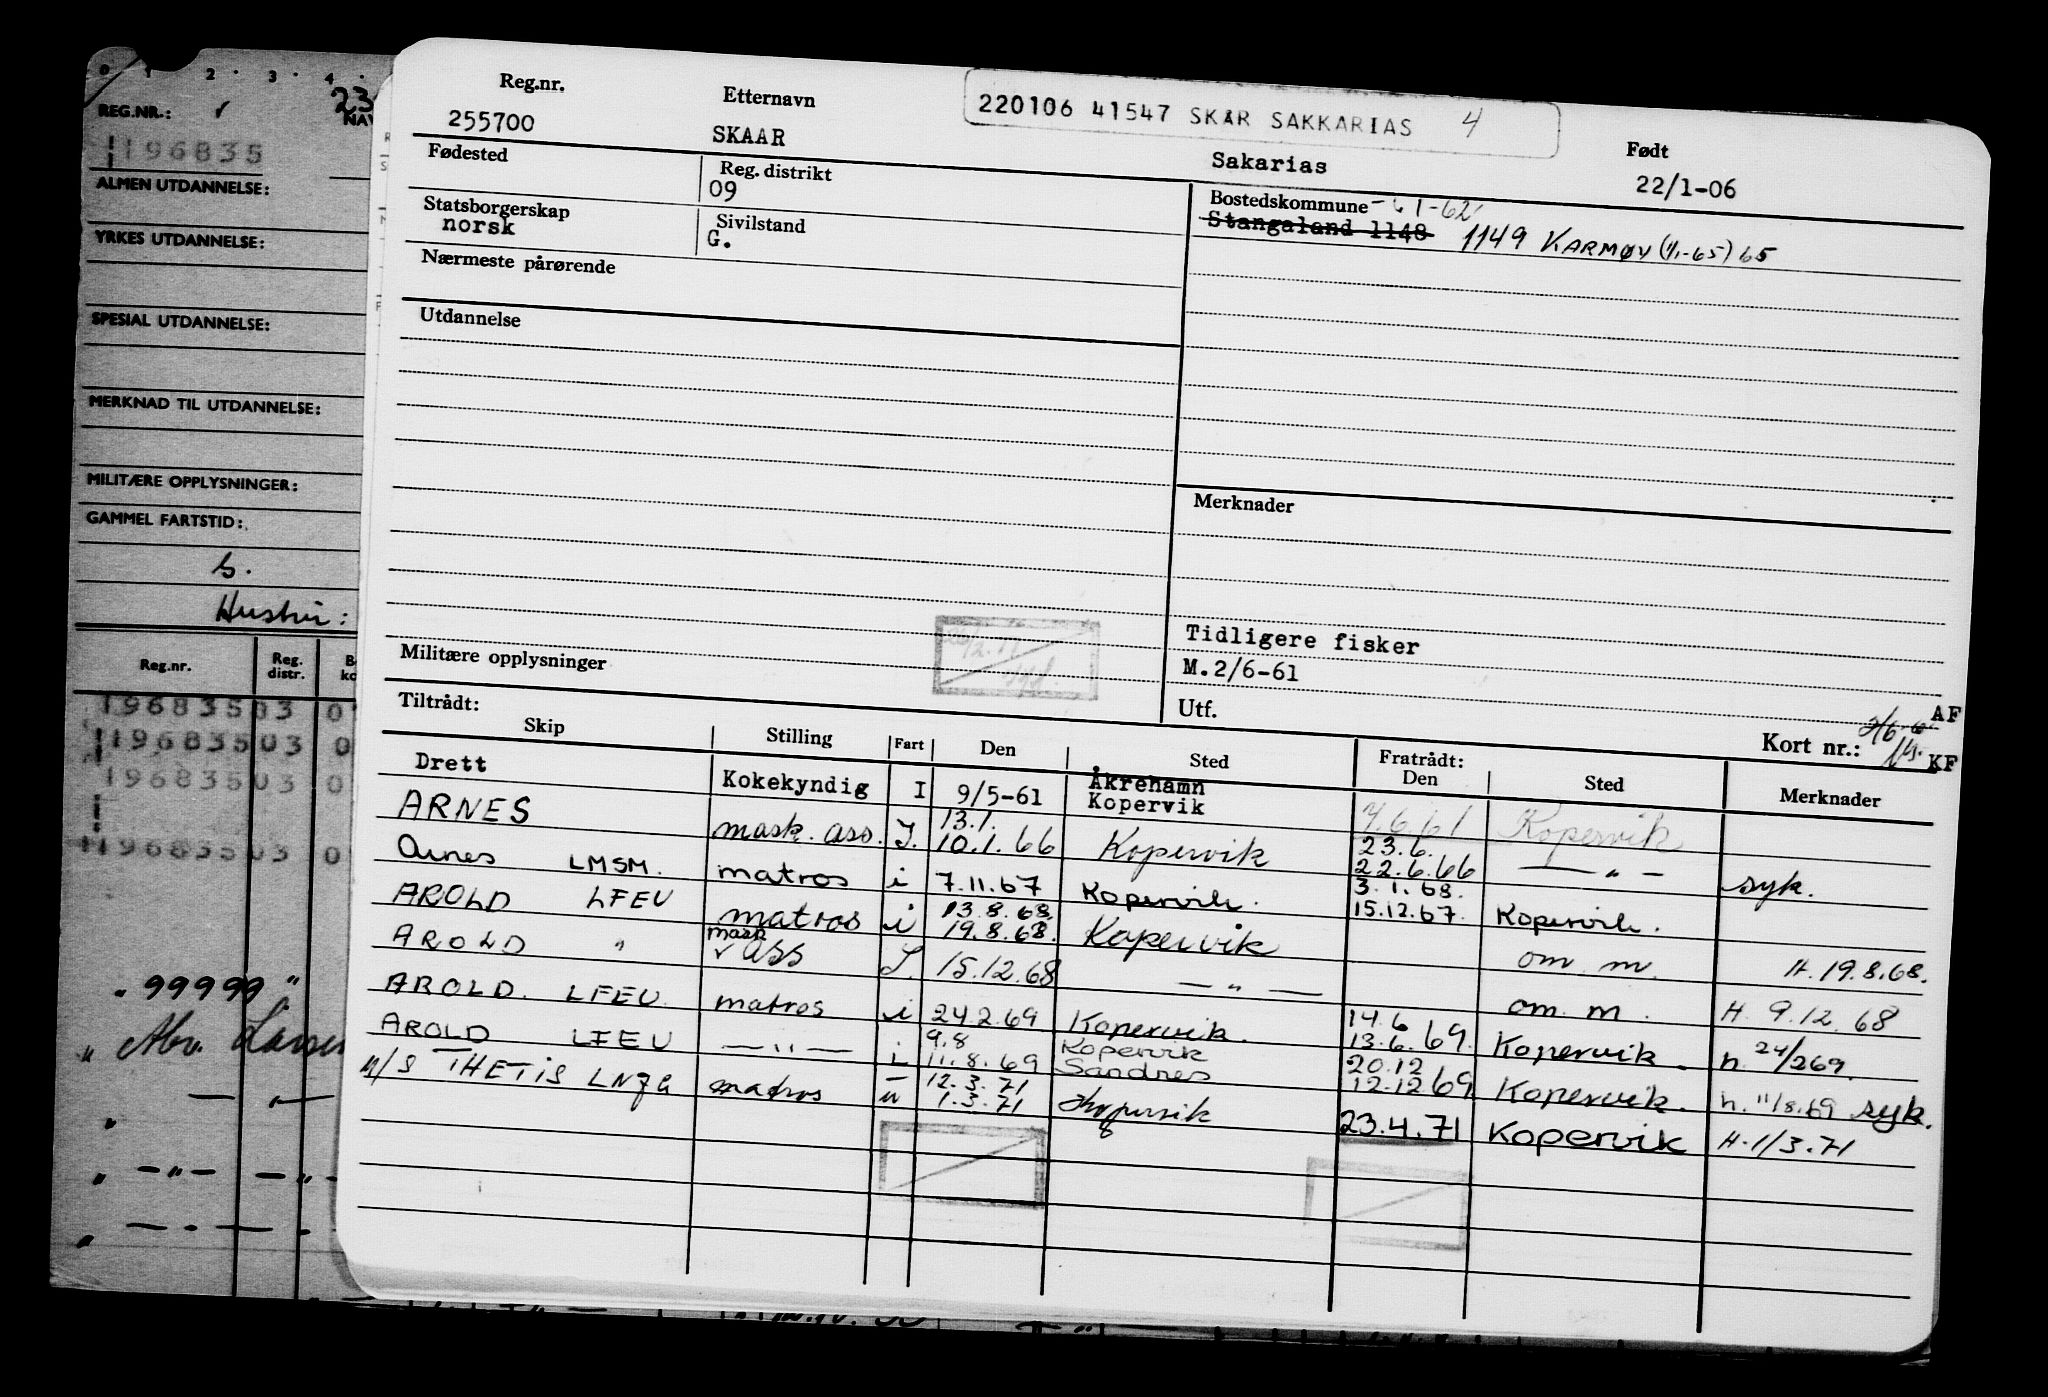 0 1 2 3 4
REG.NR.:
23
NAV
196835
ALMEN UTDANNELSE:
YRKES UTDANNELSE:
SPESIAL UTDANNELSE:
MERKNAD TIL UTDANNELSE:
MILITÆRE OPPLYSNINGER:
GAMMEL FARTSTID:
s.
Hustru:
Reg.nr. Reg. distr.
196835 03 0
196835 03 0
196835 03 0
196835 03 0
" 99999 "
Reg.nr. Etternavn 220106 41547 SKAR SAKKARIAS 4 Født
255700 SKAAR Sakarias 22/1-06
Fødested Reg. distrikt Bostedskommune
09 Stangaland 1148 1149 KARMØY (1/1-65) 65
Statsborgerskap Sivilstand
norsk G.
Nærmeste pårørende
Utdannelse
Merknader
Tidligere fisker
M.2/6-61
Militære opplysninger
Utf. AF
Kort nr.: KF
Tiltrådt: Fratrådt:
Skip Stilling Fart Den Sted Den Sted Merknader
Drett Kokekyndig I 9/5-61 Åkrehamn Kopervik 7.6.61 Kopervik
ARNES mask. ass. I. 13.1. 10.1.66 Kopervik 23.6. 22.6.66 — " — syk.
Arnes LMSM. matros i 7.11.67 Kopervik. 3.1.68. 15.12.67. Kopervik.
AROLD LFEU matros i 13.8.68. 19.8.68. Kopervik om. m. H. 19.8.68.
AROLD " mask ass I. 15.12.68 — " — om. m. H. 9.12.68
AROLD. LFEU. matros i 24.2.69 Kopervik. 14.6 13.6.69. Kopervik. h. 24/2 69.
AROLD LFEU — " — i 9.8 11.8.69 Kopervik Sandnes 20.12 12.12 69 Kopervik. h. 11/8.69 syk.
M/S THETIS LNZG matros u 12.3.71 1.3.71 Kopervik 23.4.71 Kopervik H. 1/3.71